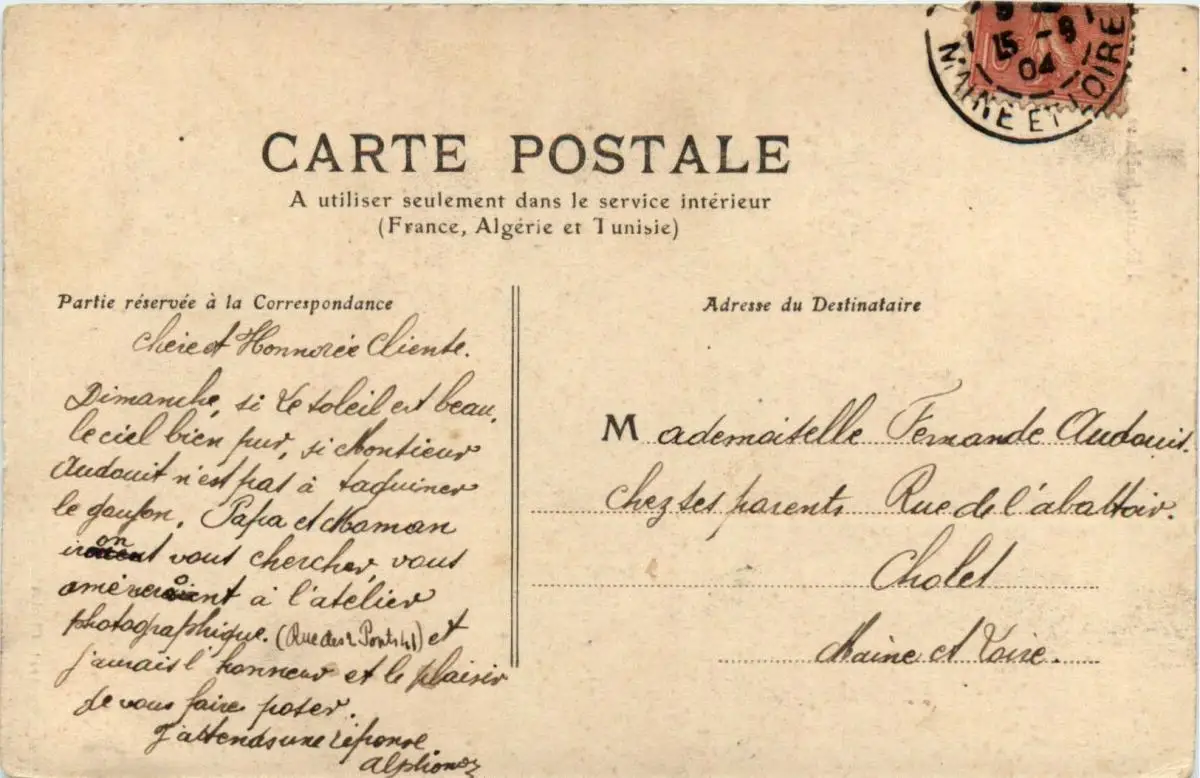 15 - 8
04
MAINE ET LOIRE
CARTE POSTALE
A utiliser seulement dans le service intérieur
(France, Algérie et Tunisie)
Partie réservée à la Correspondance
Chère et Honnorée Cliente.
Dimanche, si le soleil est beau,
le ciel bien pur, si Monsieur
Audouit n'est pas à taquiner
le goujon, Papa et Maman
iront vous chercher, vous
amèneront à l'atélier
photographique. (Rue des 2 Ponts 41) et
j'aurais l'honneur et le plaisir
de vous faire poser.
J'attends une réponse
Alphonse
Adresse du Destinataire
Mademoiselle Fernande Audouit.
chez ses parents Rue de l'abattoir.
Cholet
Maine et Loire.